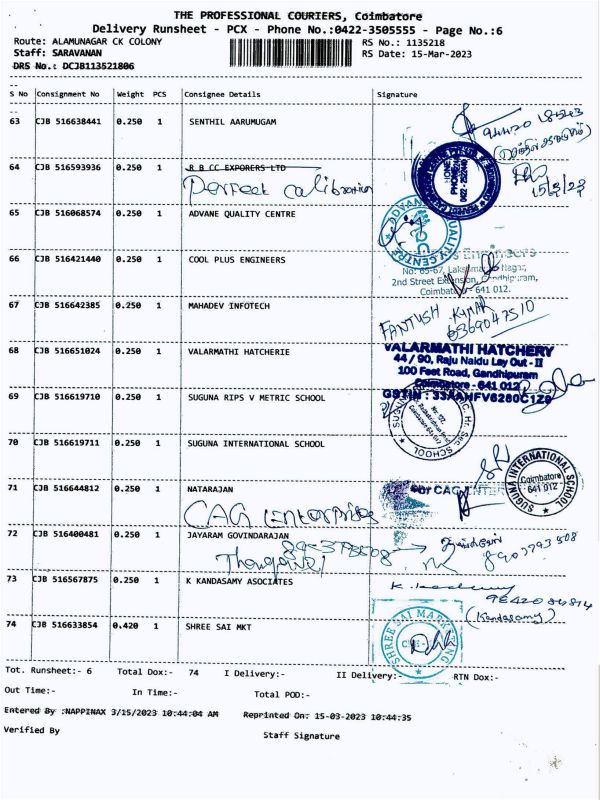 THE PROFESSIONAL COURIERS, Coimbatore
Delivery Runsheet - PCX - Phone No.:0422-3505555 - Page No.:6
Route: ALAMUNAGAR CK COLONY RS No.: 1135218
Staff: SARAVANAN RS Date: 15-Mar-2023
DRS No.: DCJB113521806
S No Consignment No Weight PCS Consignee Details Signature
63 CJB 516638441 0.250 1 SENTHIL AARUMUGAM
64 CJB 516593936 0.250 1 R B CC EXPORERS LTD
Perfect calibration
15/3/23
65 CJB 516068574 0.250 1 ADVANE QUALITY CENTRE
66 CJB 516421440 0.250 1 COOL PLUS ENGINEERS
2nd Street Extension, Gandhipuram,
Coimbatore - 641 012.
67 CJB 516642385 0.250 1 MAHADEV INFOTECH
6369047510
68 CJB 516651024 0.250 1 VALARMATHI HATCHERIE
VALARMATHI HATCHERY
44 / 90, Raju Naidu Lay Out - II
100 Feet Road, Gandhipuram
Coimbatore - 641 012
GSTIN : 33AAHFV6280C1Z9
69 CJB 516619710 0.250 1 SUGUNA RIPS V METRIC SCHOOL
70 CJB 516619711 0.250 1 SUGUNA INTERNATIONAL SCHOOL
SUGUNA INTERNATIONAL SCHOOL
Coimbatore
641 012
71 CJB 516644812 0.250 1 NATARAJAN
CAG Enterprises
for CAG ENTER
72 CJB 516400481 0.250 1 JAYARAM GOVINDARAJAN
73 CJB 516567875 0.250 1 K KANDASAMY ASOCIATES
(Kandasamy)
74 CJB 516633854 0.420 1 SHREE SAI MKT
SHREE SAI MARKETING
Tot. Runsheet:- 6 Total Dox:- 74 I Delivery:- II Delivery:- RTN Dox:-
Out Time:- In Time:- Total POD:-
Entered By :NAPPINAX 3/15/2023 10:44:04 AM Reprinted On: 15-03-2023 10:44:35
Verified By Staff Signature